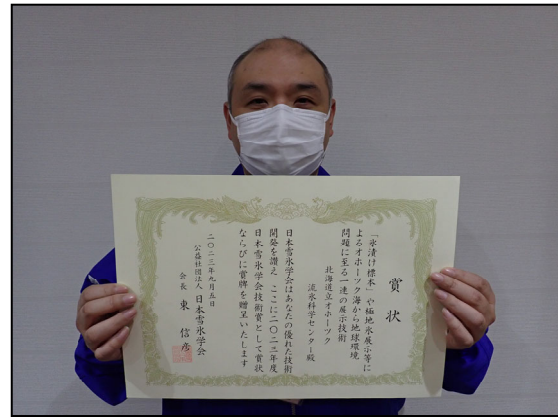 賞状
「氷漬け標本」や極地氷展示等に
よるオホーツク海から地球環境
問題に至る一連の展示技術
北海道立オホーツク
流氷科学センター殿
日本雪氷学会はあなたの優れた技術
開発を讃え ここに二〇二三年度
日本雪氷学会技術賞として賞状
ならびに賞牌を贈呈いたします
二〇二三年九月五日
公益社団法人 日本雪氷学会
会長 東 信彦